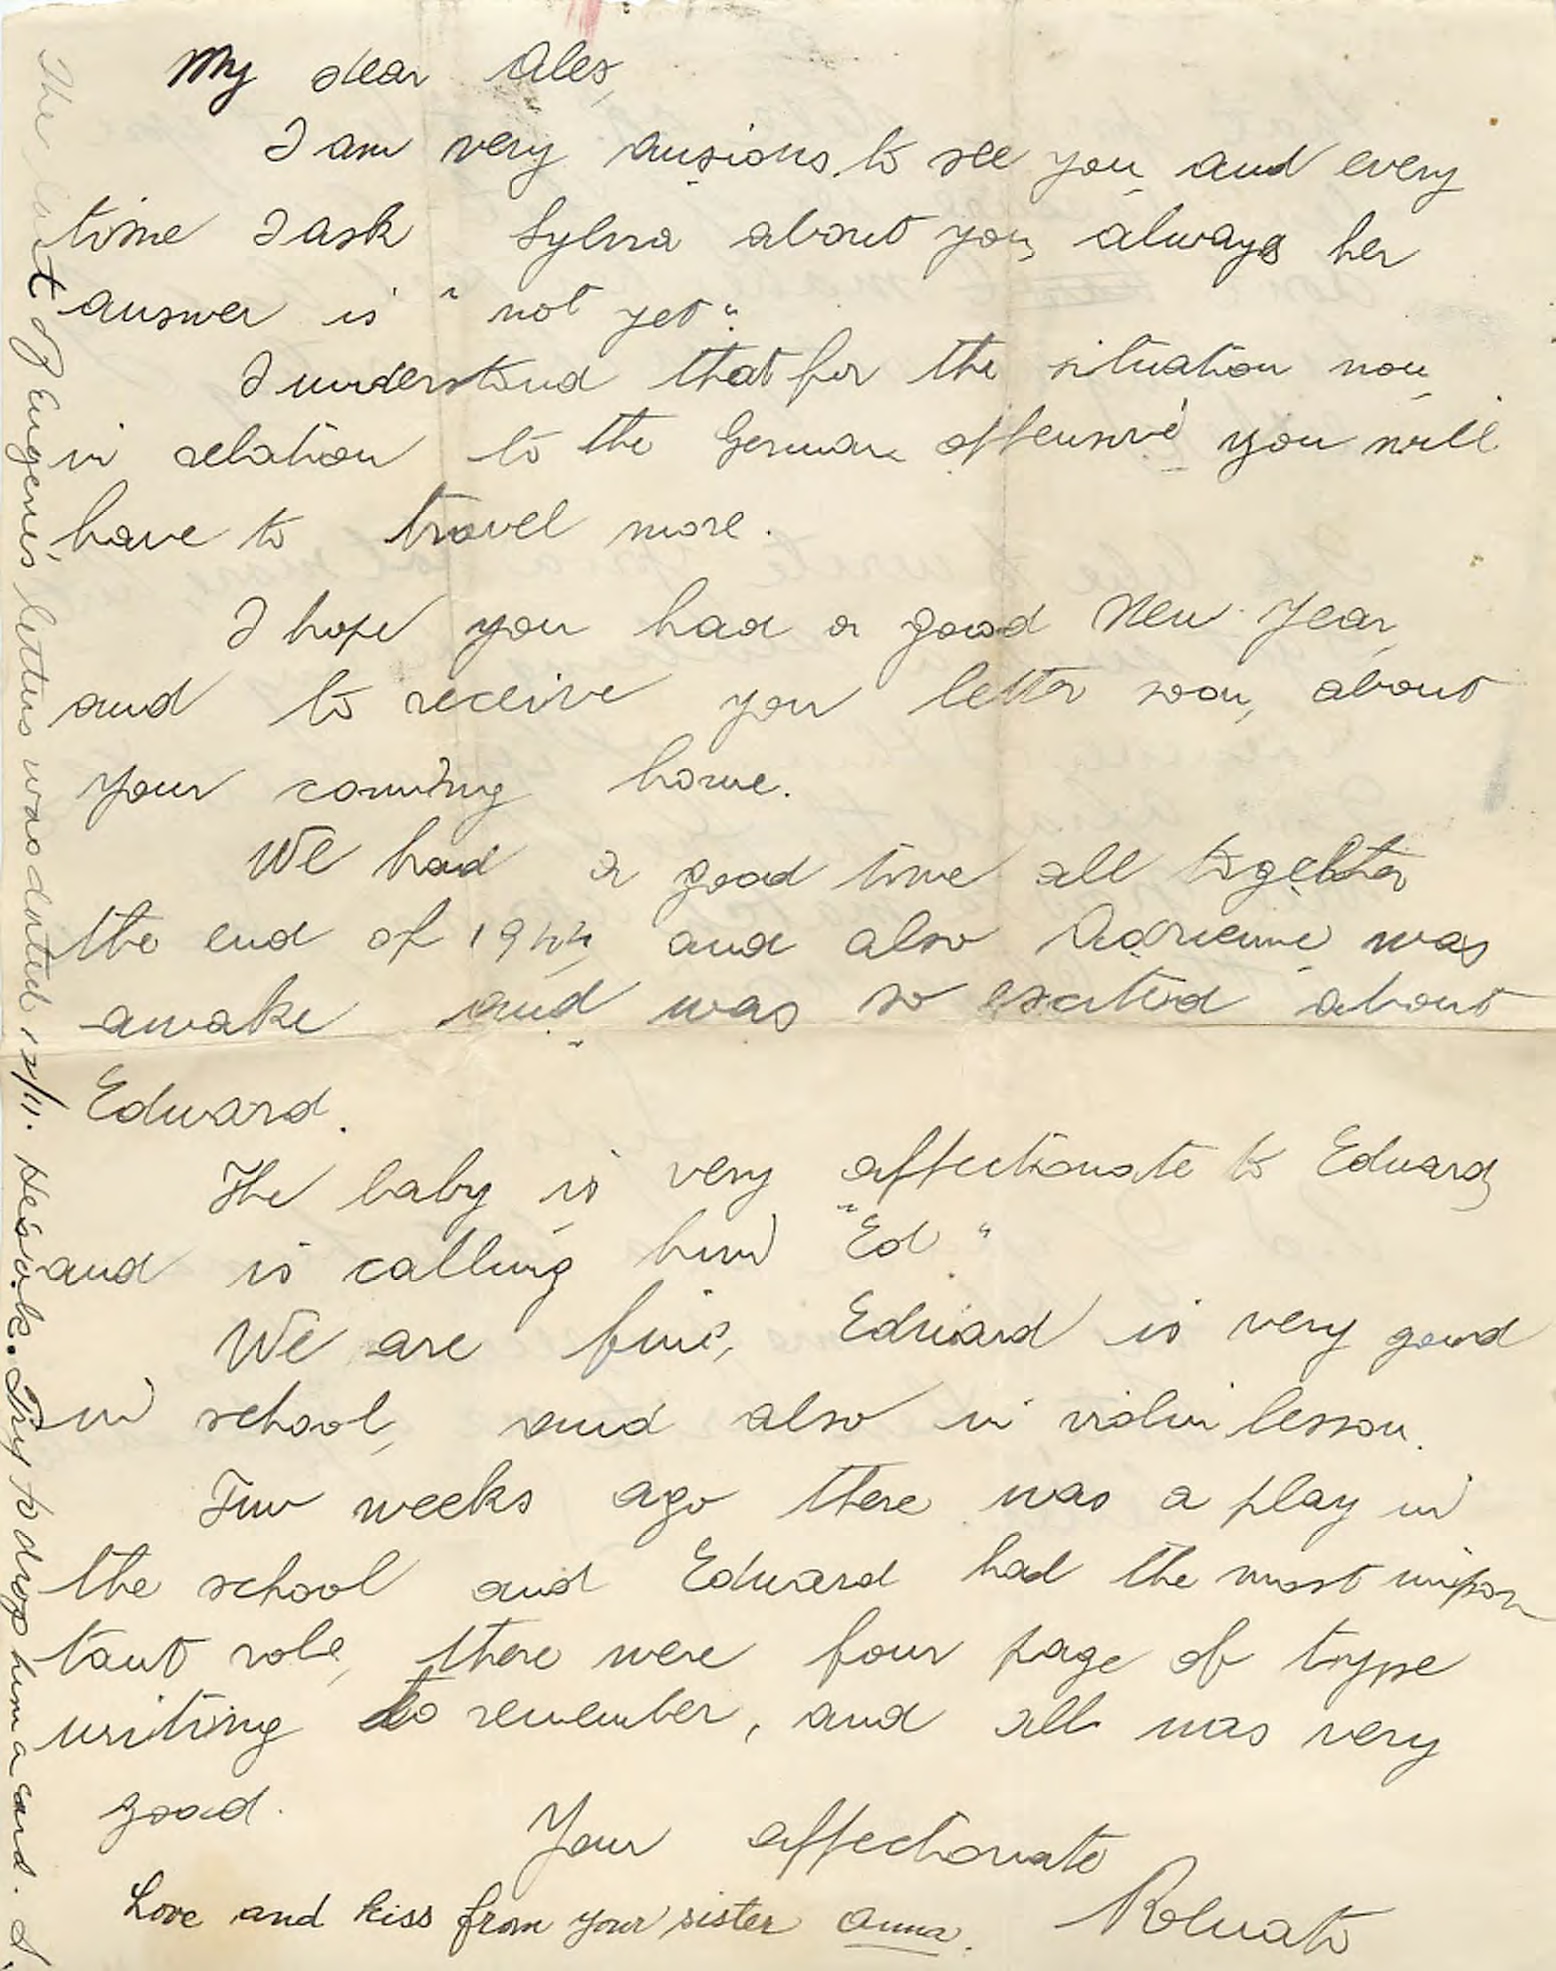 My dear Alex,
I am very ansious to see you and every
time I ask Sylvia about you, always her
answer is "not yet".
I understand that for the situation now
in relation to the German offensive you will
have to travel more.
I hope you had a good New Year
and to receive you letter soon, about
your coming home.
We had a good time all together
the end of 1944, and also Adrienne was
awake and was so excited about
Edward.
The baby is very affectionate to Edward,
and is calling him "Ed"
We are fine, Edward is very good
in school, and also in violin lesson.
Few weeks ago there was a play in
the school and Edward had the most impor
tant role, there were four page of type
writing to remember, and all was very
good.
Your affectionate
Renato
Love and kiss from your sister Anna.
The last of Eugene's letters was dated 12/11. He's o.k. Try to drop him a card. S.